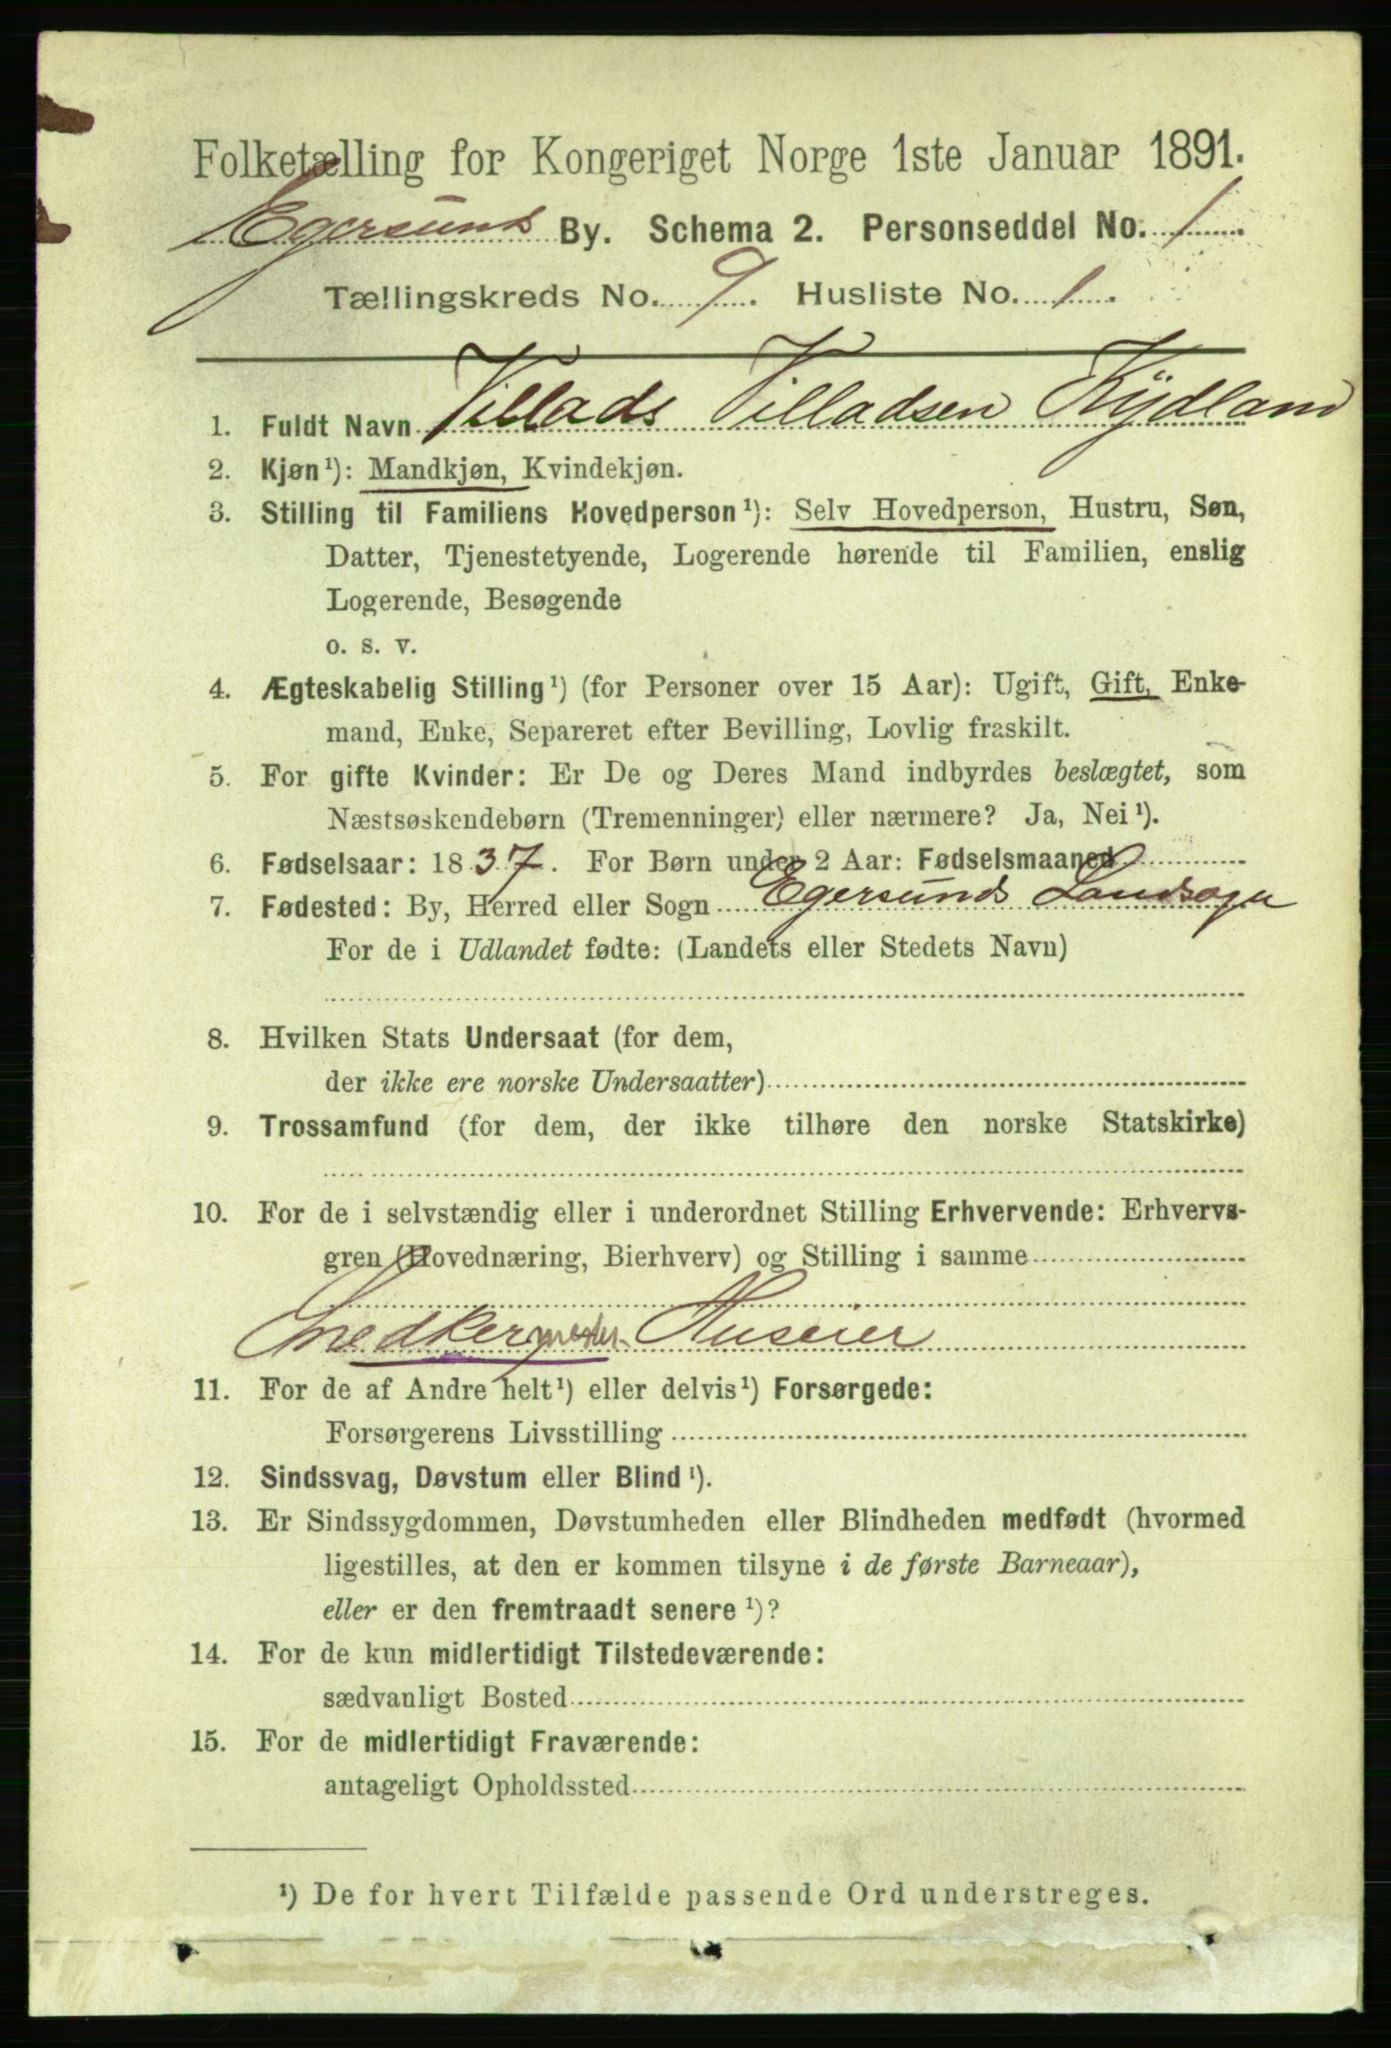 Folketælling for Kongeriget Norge 1ste Januar 1891.
Egersunds By. Schema 2. Personseddel No. 1.
Tællingskreds No. 9. Husliste No. 1.
1. Fuldt Navn Villads Villadsen Kÿdland
2. Kjøn¹): Mandkjøn, Kvindekjøn.
3. Stilling til Familiens Hovedperson¹): Selv Hovedperson, Hustru, Søn,
Datter, Tjenestetyende, Logerende hørende til Familien, enslig
Logerende, Besøgende
o. s. v.
4. Ægteskabelig Stilling¹) (for Personer over 15 Aar): Ugift, Gift, Enke-
mand, Enke, Separeret efter Bevilling, Lovlig fraskilt.
5. For gifte Kvinder: Er De og Deres Mand indbyrdes beslægtet, som
Næstsøskendebørn (Tremenninger) eller nærmere? Ja, Nei¹).
6. Fødselsaar: 1837. For Børn under 2 Aar: Fødselsmaaned
7. Fødested: By, Herred eller Sogn Egersunds Landsogn
For de i Udlandet fødte: (Landets eller Stedets Navn)
8. Hvilken Stats Undersaat (for dem,
der ikke ere norske Undersaatter)
9. Trossamfund (for dem, der ikke tilhøre den norske Statskirke)
10. For de i selvstændig eller i underordnet Stilling Erhvervende: Erhvervs-
gren (Hovednæring, Bierhverv) og Stilling i samme
Snedkermester. Huseier
11. For de af Andre helt¹) eller delvis¹) Forsørgede:
Forsørgerens Livsstilling
12. Sindssvag, Døvstum eller Blind¹).
13. Er Sindssygdommen, Døvstumheden eller Blindheden medfødt (hvormed
ligestilles, at den er kommen tilsyne i de første Barneaar),
eller er den fremtraadt senere¹)?
14. For de kun midlertidigt Tilstedeværende:
sædvanligt Bosted
15. For de midlertidigt Fraværende:
antageligt Opholdssted
¹) De for hvert Tilfælde passende Ord understreges.